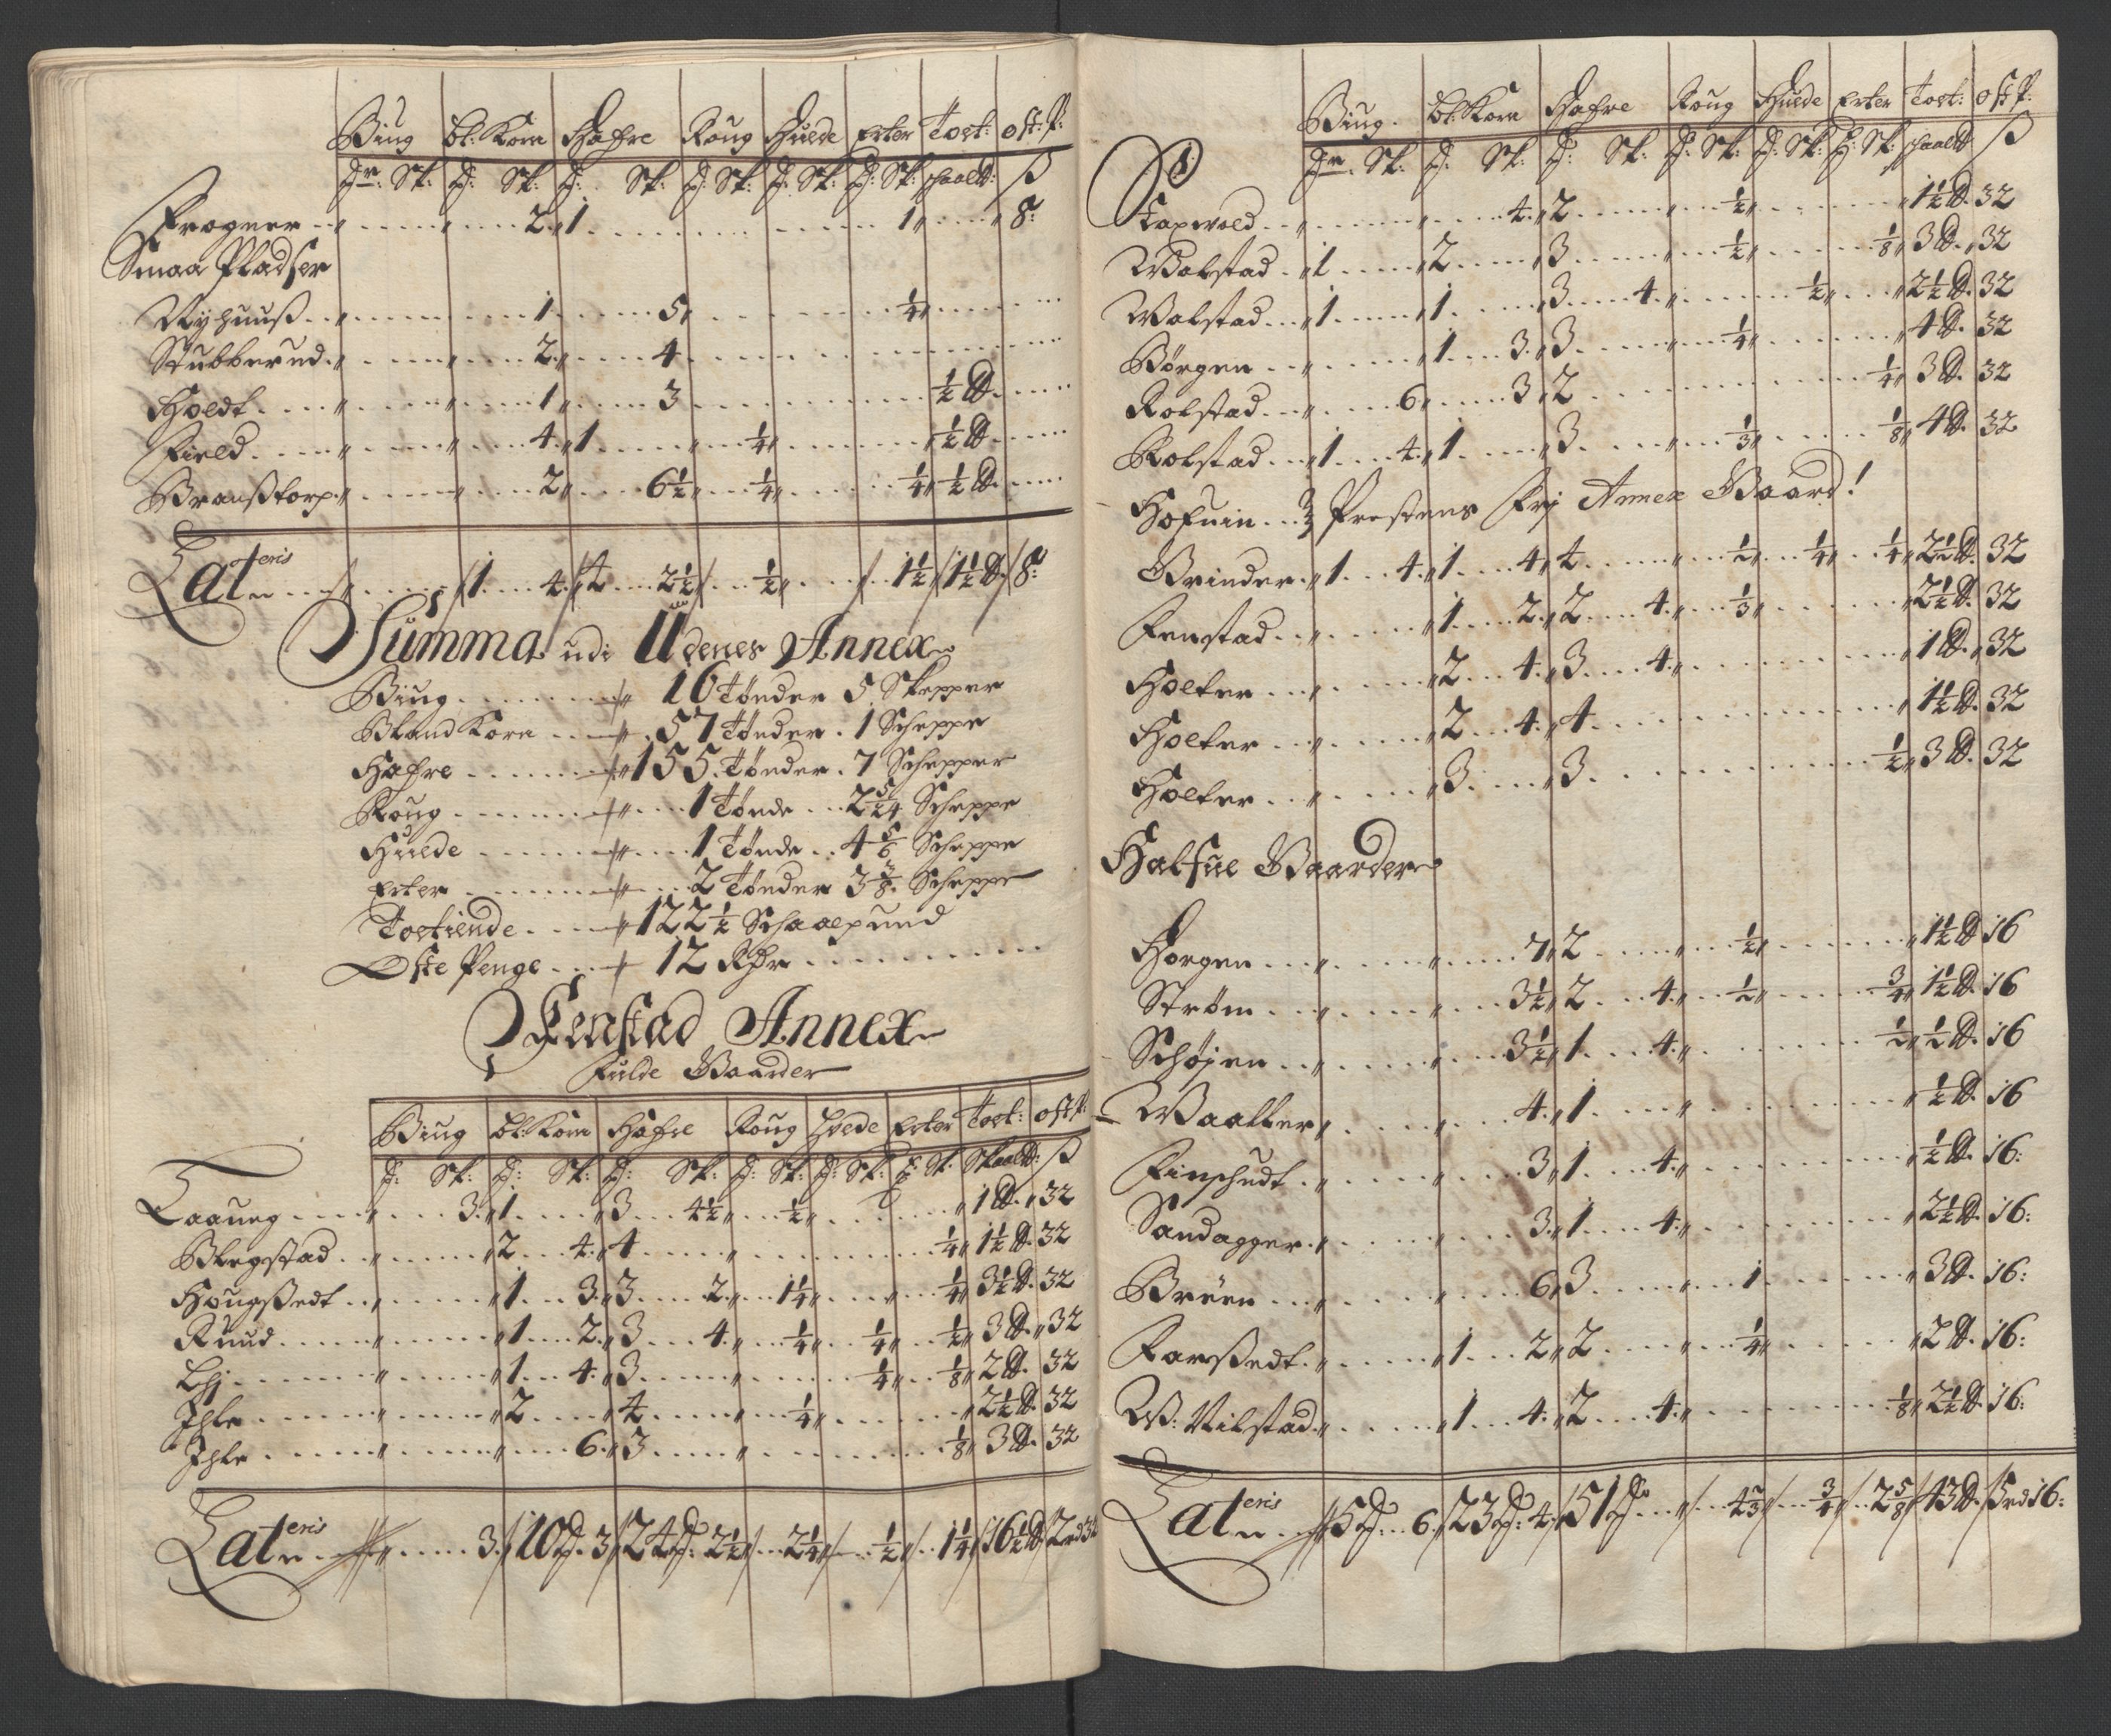 Biug Bl: Korn Hafre Roug Huede Erter Tost: Ost: P:
Tr: Sk: T: Sk: T: Sk: T: Sk: T: Sk: T: Sk: schaal℔: ß
Frogner . . . . . 2 „ 1 . . . . . 1 „ . . . „ 8:
Smaa Pladser
Nyhuuß . . „ . . . . 1 . . . . 5 „ . . . . ¼ „ . . . .
Stubberud . „ . . . „ . . 2 „ . . . 4 . . . . . .
Holdt . . . „ . . . „ . . 1 „ . . . 3 . . . . . ½ ℔ . . .
Field . . . „ . . . „ . . 4 „ 1 . . . „ . ¼ „ . . . . „ ½ ℔ . . .
Branßtorp „ . . . . „ . . 2 „ . . . 6½ „ . ¼ „ . . . ¼ „ ½ ℔ . . .
Lateris . . . . . 1 . . 4 „ 4 . . 2½ . . ½ „ . . . 1½ 1½ ℔ 8:
Summa udi Udenes Annex
Biug . . . . . . 16 Tønder 5 Skepper
Bland Korn . . . 57 Tønder . 1 Scheppe
Hafre . . . . . 155 Tønder . 7 Schepper
Roug . . . . . . 1 Tønde . . 2 5/24 Scheppe
Huede . . . . . . 1 Tønde . . 4 5/6 Scheppe
Erter . . . . . . 2 Tønder 3 3/8 Scheppe
Tostiende . . . 122½ Schaalpund
Oste Penge . . . 12 Rdr . . . . .
Fenstad Annex
Fulde Gaarder
Biug Bl: Korn Hafre Roug Hvede Erter Tost: Ost P:
T: Sk: T: Sk: T: Sk: T: Sk: T: Sk: T: Sk: Skaal℔: ß
Laaueg . . . „ . . 3 „ 1 . . . „ 3 . . 4½ „ . . ½ „ . . . . „ 1 ℔ . „ 32
Blegstad . . „ . . . „ 2 . . 4 „ 4 . . . „ . . . . . ¼ „ 1½ ℔ . 32
Hougßedt . . „ . . . „ 1 . . 3 „ 3 . . 2 „ . . 1¼ „ . . „ . . ¼ „ 3½ ℔ . 32
Ruud . . . . „ . . . „ 1 . . 2 „ 3 . . 4 „ . . ¼ „ . . ¼ „ . . ½ „ 3 ℔ . „ 32
Lhj . . . . „ . . . „ 1 . . 4 „ 3 . . . „ . . . . ¼ „ . . ⅛ „ 2 ℔ . 32
Ihle . . . . „ . . . „ 2 . . . „ 4 . . . „ . . ¼ „ . . . . „ 2½ ℔ . 32
Ihle . . . . „ . . . „ . . 6 „ 3 . . . „ . . . . . ⅛ „ 3 ℔ . 32
Lateris . . . . . 3 10 T: 3 24 T: 2½ . . 2¼ „ . . ½ „ . . 1¼ 16½ ℔ 2 rd 32
Biug . Bl: Korn Hafre Roug Huede Erter Tost: Ost P:
Tr: Sk: T: Sk: T: Sk: T: Sk: T: Sk: T: Sk: schaal℔ ß
Taxvold . . „ . . . . „ . . 4 „ 2 . . . „ . ½ „ . . . . „ 1½ ℔ . 32
Wolstad . „ 1 . . . „ 2 . . . „ 3 . . . „ . ½ „ . . . ⅛ „ 3 ℔ . „ 32
Wolstad . . „ 1 . . . „ 1 . . . „ 3 . . 4 „ . . . ½ „ . . „ 2½ ℔ . 32
Børgen . . „ . . . „ 1 . . 3 „ 3 . . . „ . ¼ „ . . . . „ 4 ℔ . 32
Rolstad . . „ . . 6 „ . . 3 „ 2 . . . . . . . ¼ „ 3 ℔ . 32
Rolstad . . „ 1 . . 4 „ 1 . . . „ 3 . . . „ . ⅓ „ . . . ⅛ „ 4 ℔ . 32
Hofuin . . Prestens Frj Annex Gaard!
Grinder . „ 1 . . 4 „ 1 . . 4 „ 4 . . . „ . ½ „ . . ¼ „ . ¼ „ 2½ ℔ . 32
Fenstad . . „ . . . „ 1 . . 2 „ 2 . . 4 „ . ⅓ „ . . . . „ 2½ ℔ . 32
Holter . . „ . . . „ 2 . . 4 „ 3 . . 4 „ . . . . . . „ 1 ℔ . „ 32
Holter . . „ . . . „ 2 . . 4 „ 4 . . . . . . . . „ 1½ ℔ . 32
Holter . . „ . . . „ 3 . . . „ 3 . . . . . . . ½ „ 3 ℔ . 32
Halfue Gaarder
Horgen . . „ . . . „ . . 7 „ 2 . . . „ . ½ „ . . . . „ 1½ ℔ 16
Strøm . . „ . . . „ . . 3½ „ 2 . . 4 „ . ½ „ . . . ¾ „ 1½ ℔ . 16
Schøjen . . „ . . . „ . . 3½ „ 1 . . 4 „ . . . . . ½ „ ½ ℔ . 16
Waalter „ . . . . „ . . 4 „ 1 . . . „ . . . . . . „ ½ ℔ . 16
Finschudt . „ . . . „ . . 3 „ 1 . . 4 „ . . . . . . „ ½ ℔ . 16:
Sandagger . „ . . . „ . . 3 „ 1 . . 4 „ . . . . . . „ 2½ ℔ . 16:
Breen . . „ . . . „ . . 6 „ 3 . . . „ . 1 . . . . „ 3 ℔ . 16:
Farßedt . „ . . . „ 1 . . 2 „ 2 . . . „ . ¼ „ . . . . „ 2 ℔ . 16:
W: Vilstad . „ . . . „ 1 . . 4 „ 2 . . 4 „ . . . . . ⅛ „ 2½ ℔ . 16:
Lateris . . 5 T: . 6 23 T: 4 51 T: . . „ . . 4⅔ . . ¾ . . 2⅝ 43 ℔ . 5 rd 16: